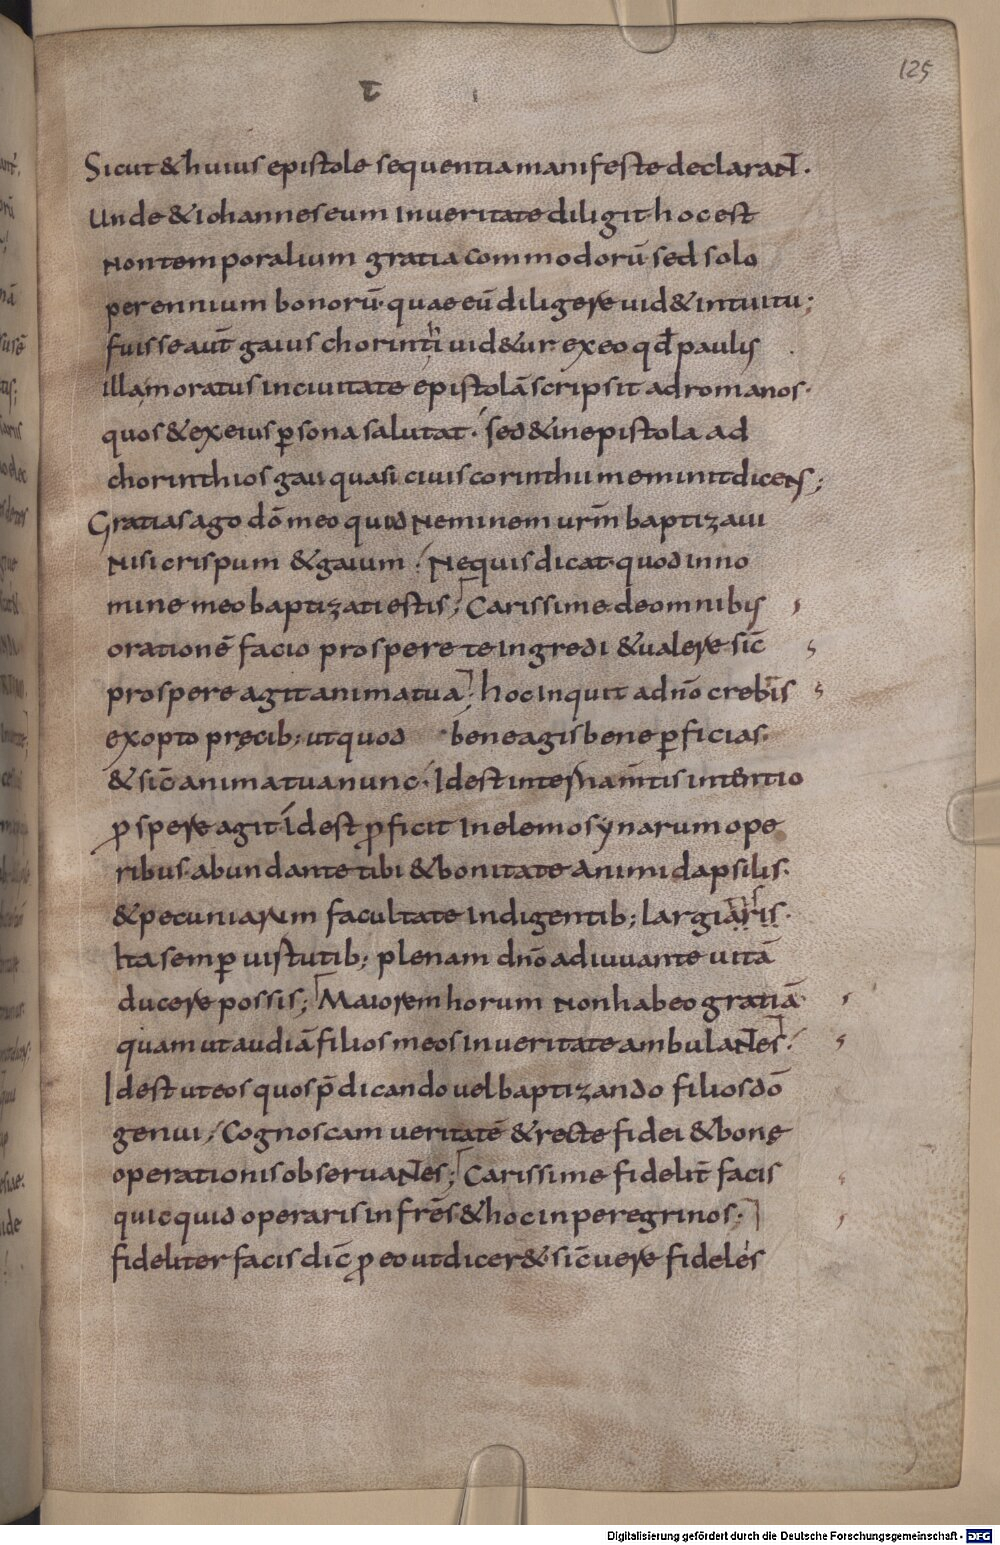 125
Sicut & huius epistole sequentia manifeste declaraNt.
Unde & iohannes eum inueritate diligit. hoc est
non temporalium gratia commodorū. sed solo
perennium bonorū. quae eū diligere uid& intuitu;
fuisse aut̄ gaius chorinthi uid&ur. ex eo qđ paulus
illa moratus inciuitate epistolā scripsit ad romanos.
quos & ex eius p̱sona salutat. sed & inepistola ad
chorinthios gaii quasi ciuis corinthii meminit dicens;
Gratias ago dō meo quia neminem urm̄ baptizaui
nisi crispum & gaium. Nequis dicat quod inno
mine meo baptizati estis; Carissime de omnibus
orationē facio prospere te ingredi & ualere sic̄
prospere agit anima tua; hoc inquit ad nō crebris
exopto precib; ut quod bene agis bene p̱ficias.
& sic̄ anima tua nunc. Idest interna m̄tis intentio
ꝓspere agit. Idest ꝓficit in elemosynarum ope
ribus. abundante tibi & bonitate animi dapsilis.
& pecuniarum facultate indigentib; largiaris.
Ita semp̱ uirtutib; plenam dn̄o adiuuante uitā
ducere possis; Maiorem horum non habeo gratiā
quam ut audiā filios meos inueritate ambulaNtes.
Idest ut eos quos p̄dicando uel baptizando filios dō
genui, Cognoscam ueritatē & recte fidei & bonę
operationis obseruaNtes; Carissime fidelit̄ facis
quicquid operaris in fr̄es & hoc in peregrinos.
fideliter facis dic̄ ꝓ eo ut dicer& sic̄ uere fideles
Digitalisierung gefördert durch die Deutsche Forschungsgemeinschaft - DFG